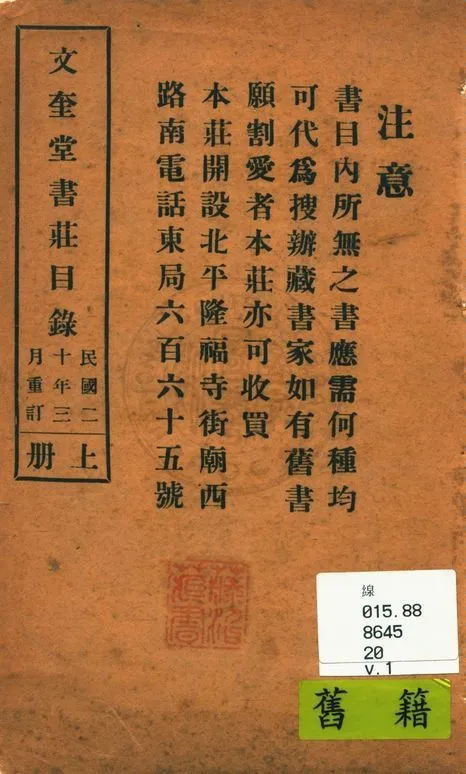 注意
書目內所無之書應需何種均
可代爲搜辦藏書家如有舊書
願割愛者本莊亦可收買
本莊開設北平隆福寺街廟西
路南電話東局六百六十五號
文奎堂書莊目錄
民國二
十年三
月重訂
上册
線
015.88
8645
20
v.1
舊籍